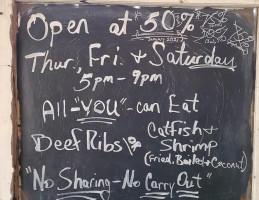 Open at 50%
Thur, Fri. & Saturday
5pm - 9pm
All-"YOU"-can Eat
Beef Ribs
Catfish &
Shrimp
(Fried, Boiled & Coconut)
"No Sharing - No Carry Out"